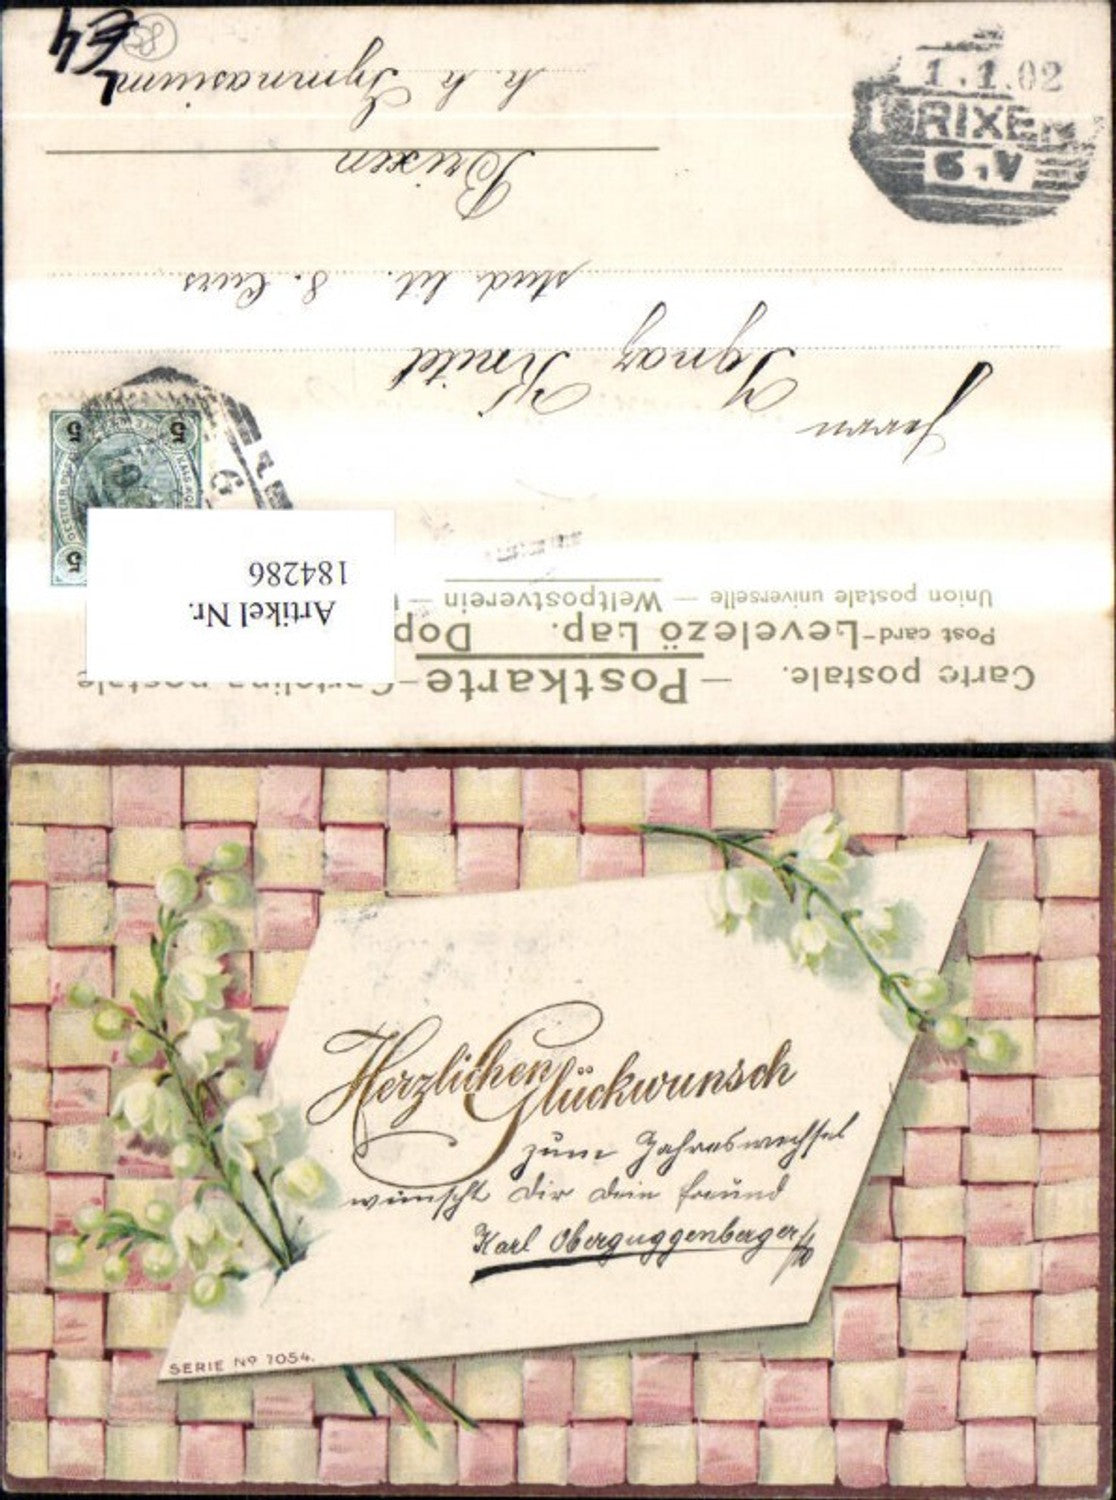 Carte postale. — Postkarte — Cartolina postale
Post card-Levelező Lap. Dop
Union postale universelle — Weltpostverein —
Artikel Nr.
184286
5 5
5
Herrn Ignaz Knitel
stud. lit. 8. Curs
Brixen
k. k. Gymnasium
€4
85
1.1.02
BRIXEN
6.V
Herzlichen
Glückwunsch
zum Jahreswechsel
wünscht Dir Dein Freund
Karl Oberguggenberger
SERIE No 7054.